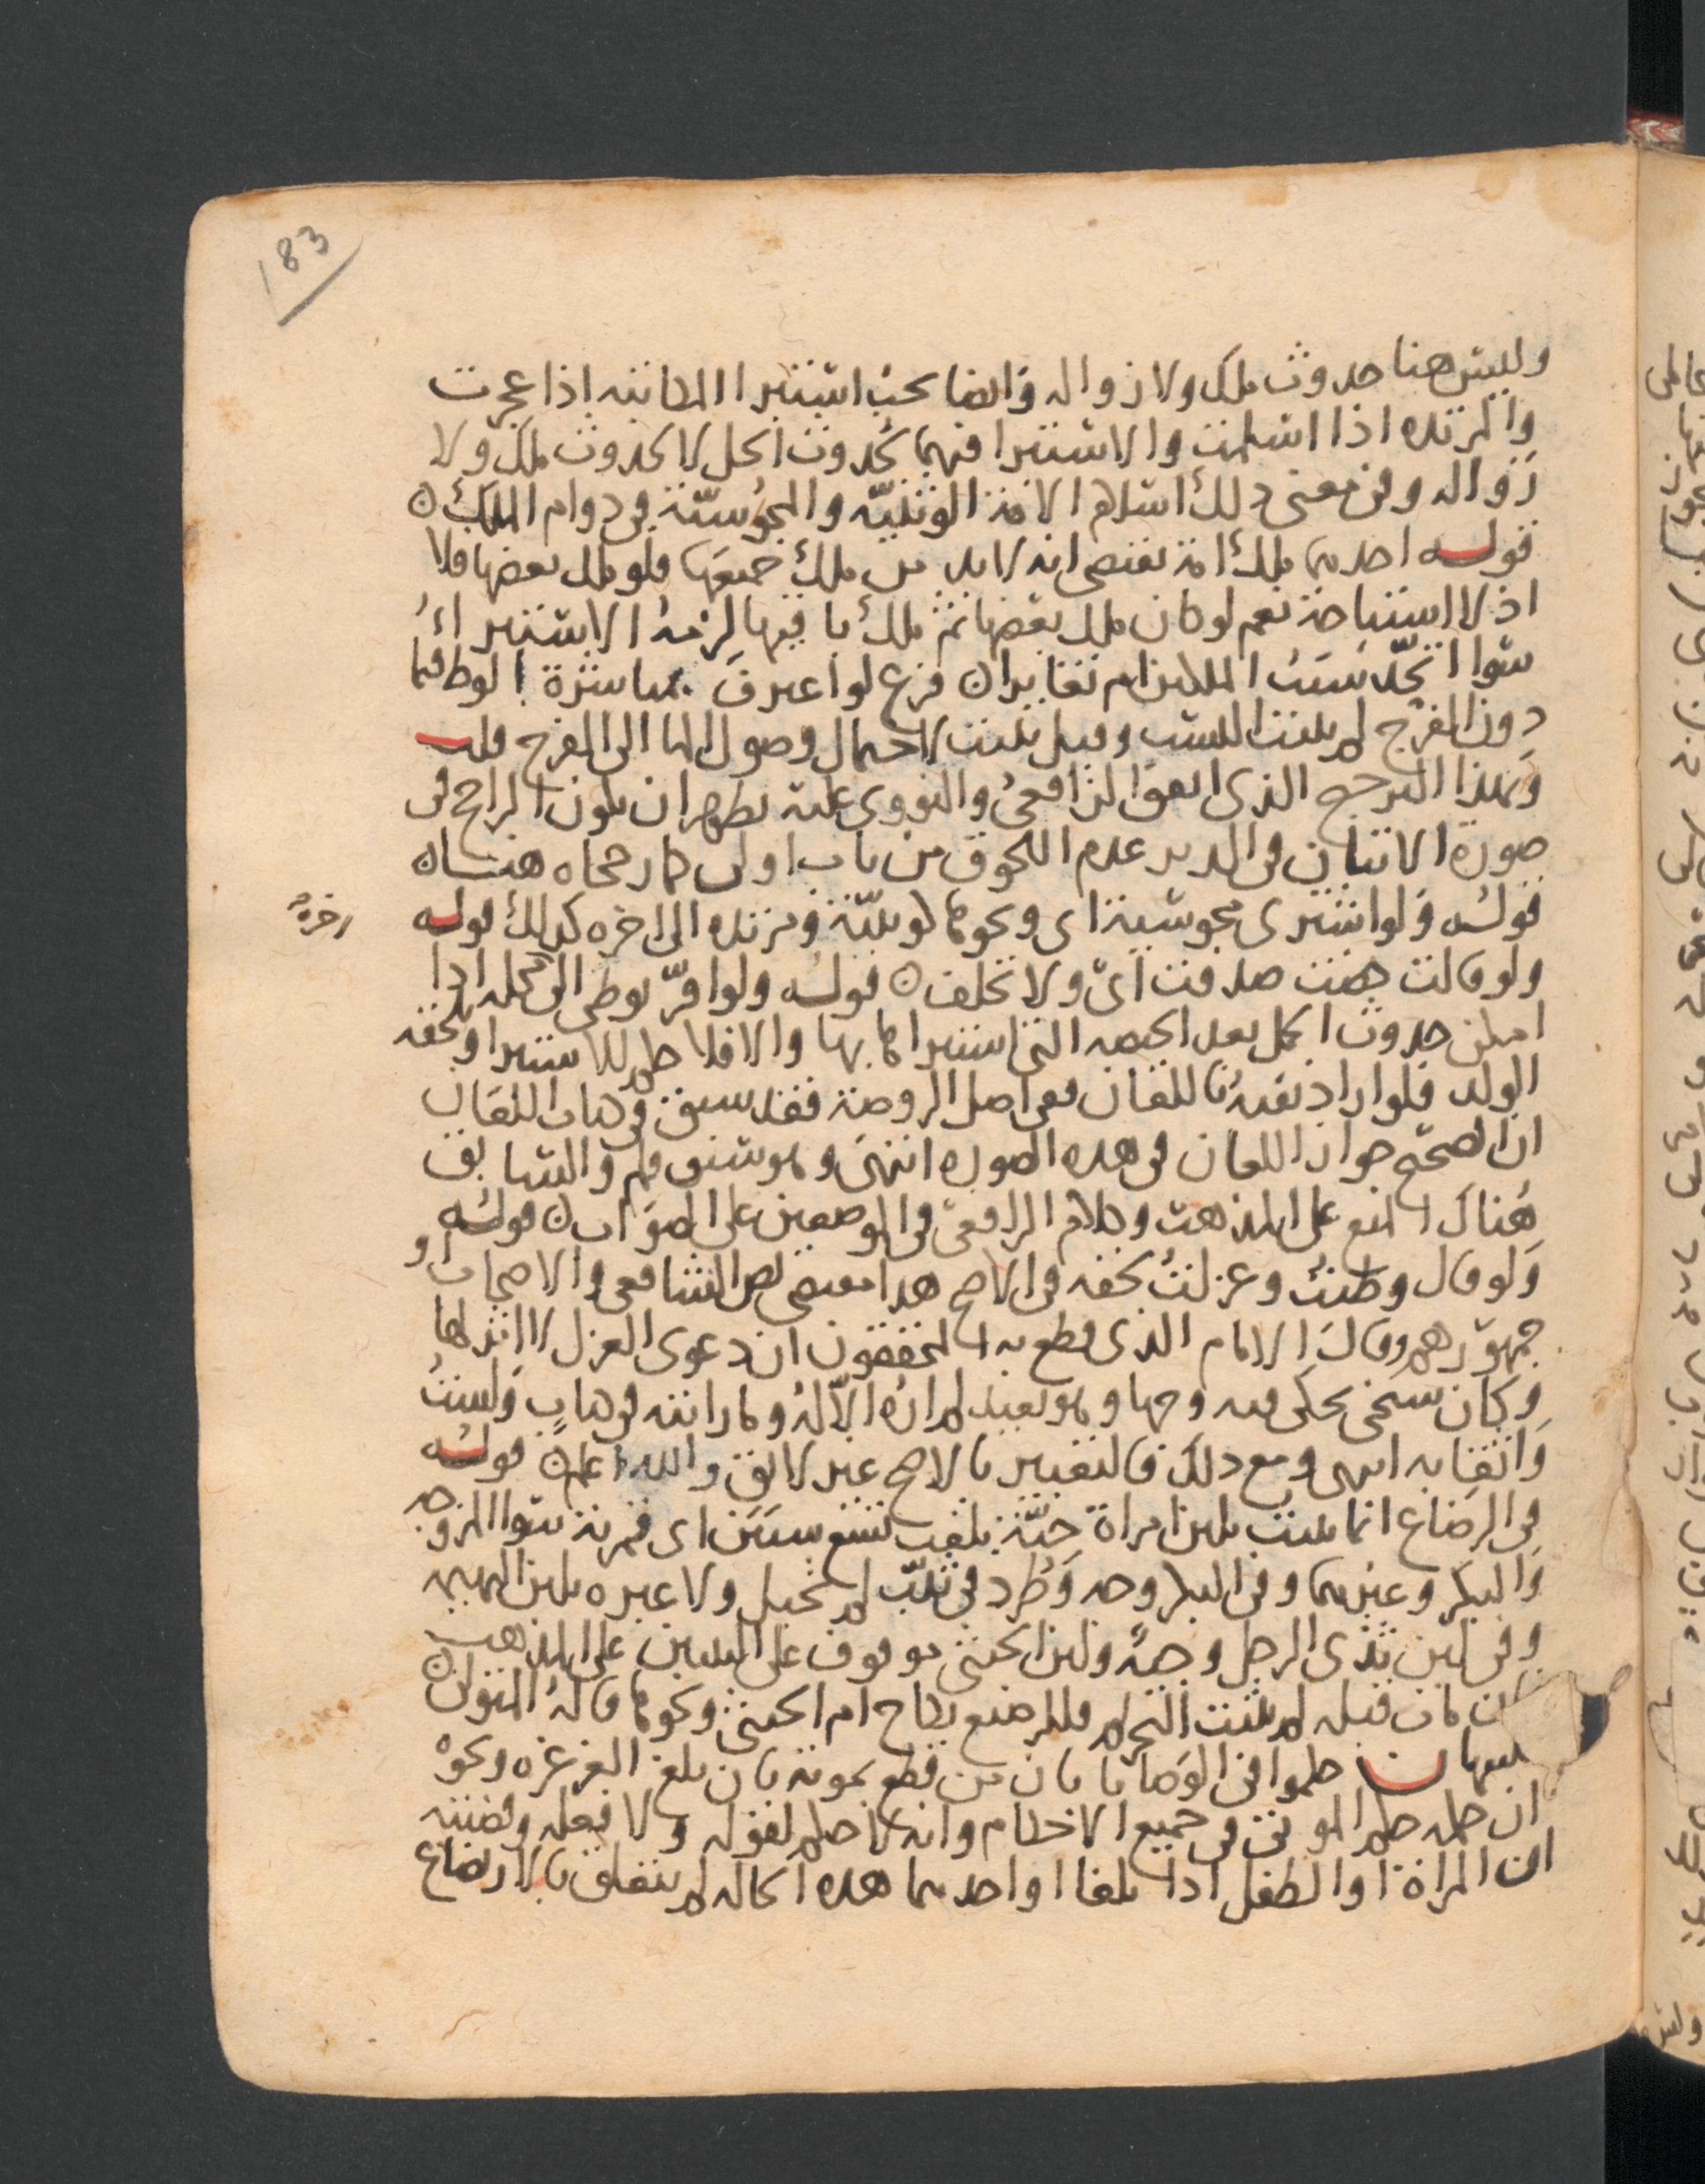 183
وليس هنا حدوث ملك ولا زواله وايضا يجب استبرا المكاتبه اذا عجزت
والمرتده اذا اسلمت والاستبرا فيهما لحدوث الحل لا لحدوث ملك ولا
زواله وفي معنى ذلك اسلام الامة الوثنيّة والمجوسيّة في دوام الملك ن
قوله احدهما ملك امة يقتضي انه لا بد من ملك جميعها فلو ملك بعضها فلا
اذ لا استباحة نعم لو كان ملك بعضها ثم ملك باقيها لزمه الاستبراء
سوا اتحد سبب الملكين ام تغايرا ن فرع لو اعترف بمباشرة الوطء فيما
دون الفرج لم يثبت النسب وقيل يثبت لاحتمال وصول الما الى الفرج قلت
وبهذا الترجيح الذي اتفق الرافعي والنووي عليه يظهر ان يكون الراجح في
صورة الاتيان في الدبر عدم اللحوق من باب اولى كما رجحاه هنا ن
قوله ولو اشترى مجوسية اى ونحوها كوثنيّة ومرتده الى اخره كذلك قوله
اخره
ولو قالت حضت صدقت اي ولا تحلف ن قوله ولو اقرّ بوطي الى محله اذا
امكن حدوث الحمل بعد الحيضه التي استبراها بها والا فلا حكم للاستبرا ويلحقه
الولد فلو اراد نفيه باللعان ففي اصل الروضة فقد سبق في كتاب اللعان
ان الصحيح جواز اللعان في هذه الصوره انتهى وهو سبق قلم والسابق
هناك المنع على المذهب وكلام الرافعي في الموضعين على الصواب ن قوله
ولو قال وطئت وعزلت لحقه في الاصح هذا مقتضى نص الشافعي والاصحاب او
جمهورهم وقال الامام الذي قطع به المحققون ان دعوى العزل لا اثر لها
وكان شيخي يحكي فيه وجها وهو بعيد لم اره الا له وما رايته في كتاب ولست
واثقا به انتهى ومع ذلك فالتعبير بالاصح غير لائق والله اعلم ن قوله
في الرضاع انما يثبت بلبن امراة حيّة بلغت تسع سنين اى قمرية سوا المزوجه
والبكر وغيرهما وفي البكر وجه وطرد في ثيّب لم تحبل ولا عبره بلبن البهيمه
وفي لبن ثدي الرجل وجه ولبن الخنثى موقوف على التبيين على المذهب
مات قبله لم يثبت التحريم فللمرضع نكاح ام الخنثى ونحوها قاله المتولي ن
تنبيهات حكموا في الوصايا بان من قطع بموته بان بلغ الغرغره ونحوه
ان حكمه حكم الموتى في جميع الاحكام وانه لا حكم لقوله ولا فعله وقضيته
ان المراة او الطفل اذا بلغا او احدهما هذه الحاله لم يتعلق بالارضاع